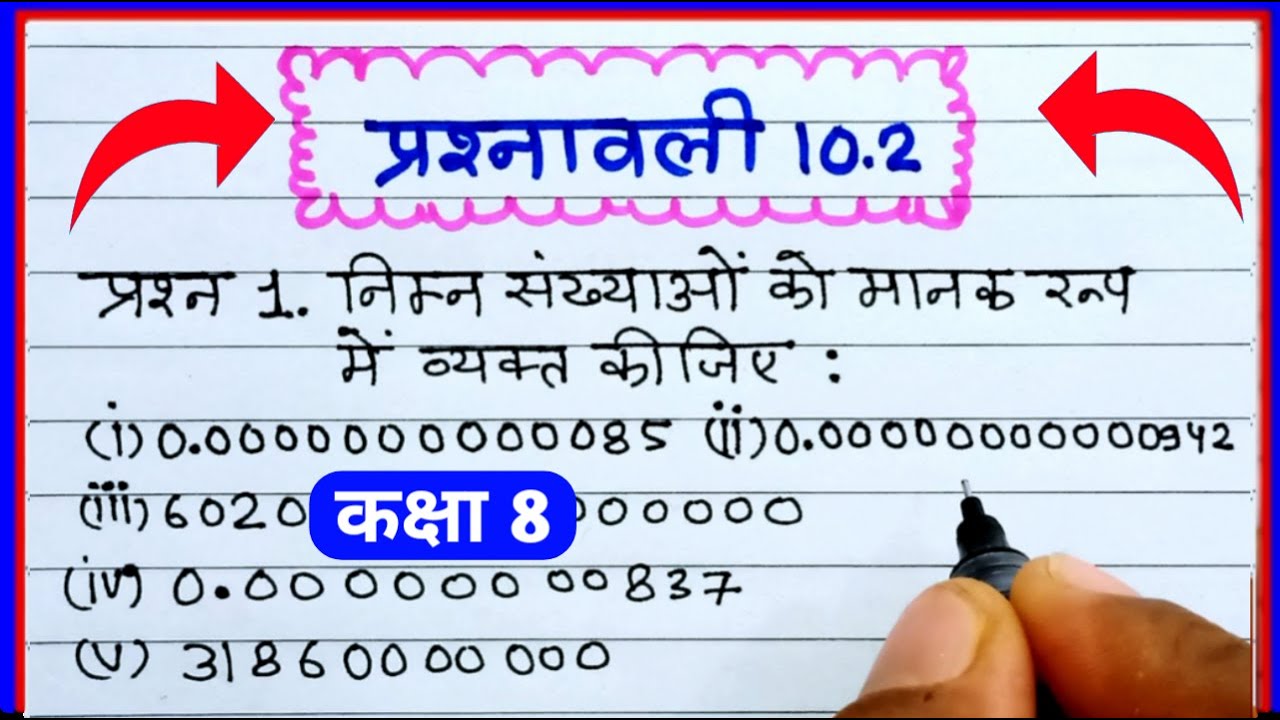 प्रश्नावली 10.2
प्रश्न 1. निम्न संख्याओं को मानक रूप
में व्यक्त कीजिए :
(i) 0.0000000000085 (ii) 0.00000000000942
(iii) 6020 कक्षा 8 000000
(iv) 0.00000000837
(v) 31860000000